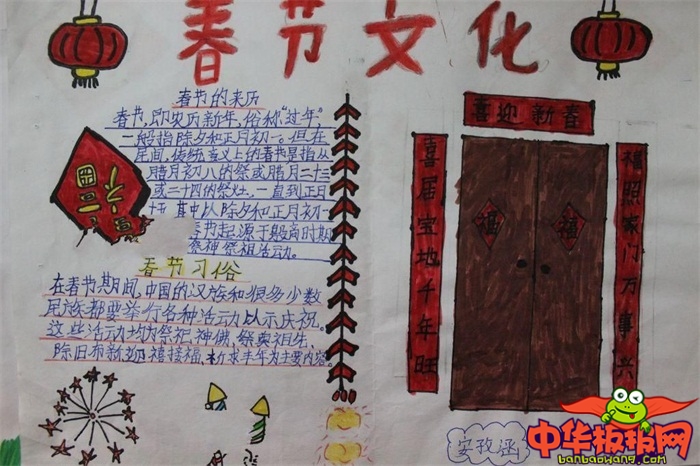 春节文化
春节的来历
春节,即农历新年,俗称"过年"
一般指除夕和正月初一。但在
民间,传统意义上的春节是指从
腊月初八的祭或腊月二十三
或二十四的祭灶,一直到正月
十五 其中以除夕和正月初一
春节起源于殷商时期
祭神祭祖活动。
春节习俗
在春节期间,中国的汉族和很多少数
民族都要举行各种活动以示庆祝。
这些活动均为祭祀神佛、祭奠祖先、
除旧布新迎禧接福、祈求丰年为主要内容。
喜迎新春
喜居宝地千年旺
福照家门万事兴
福
福
安孜涵
中华板报网
banbaowang.com